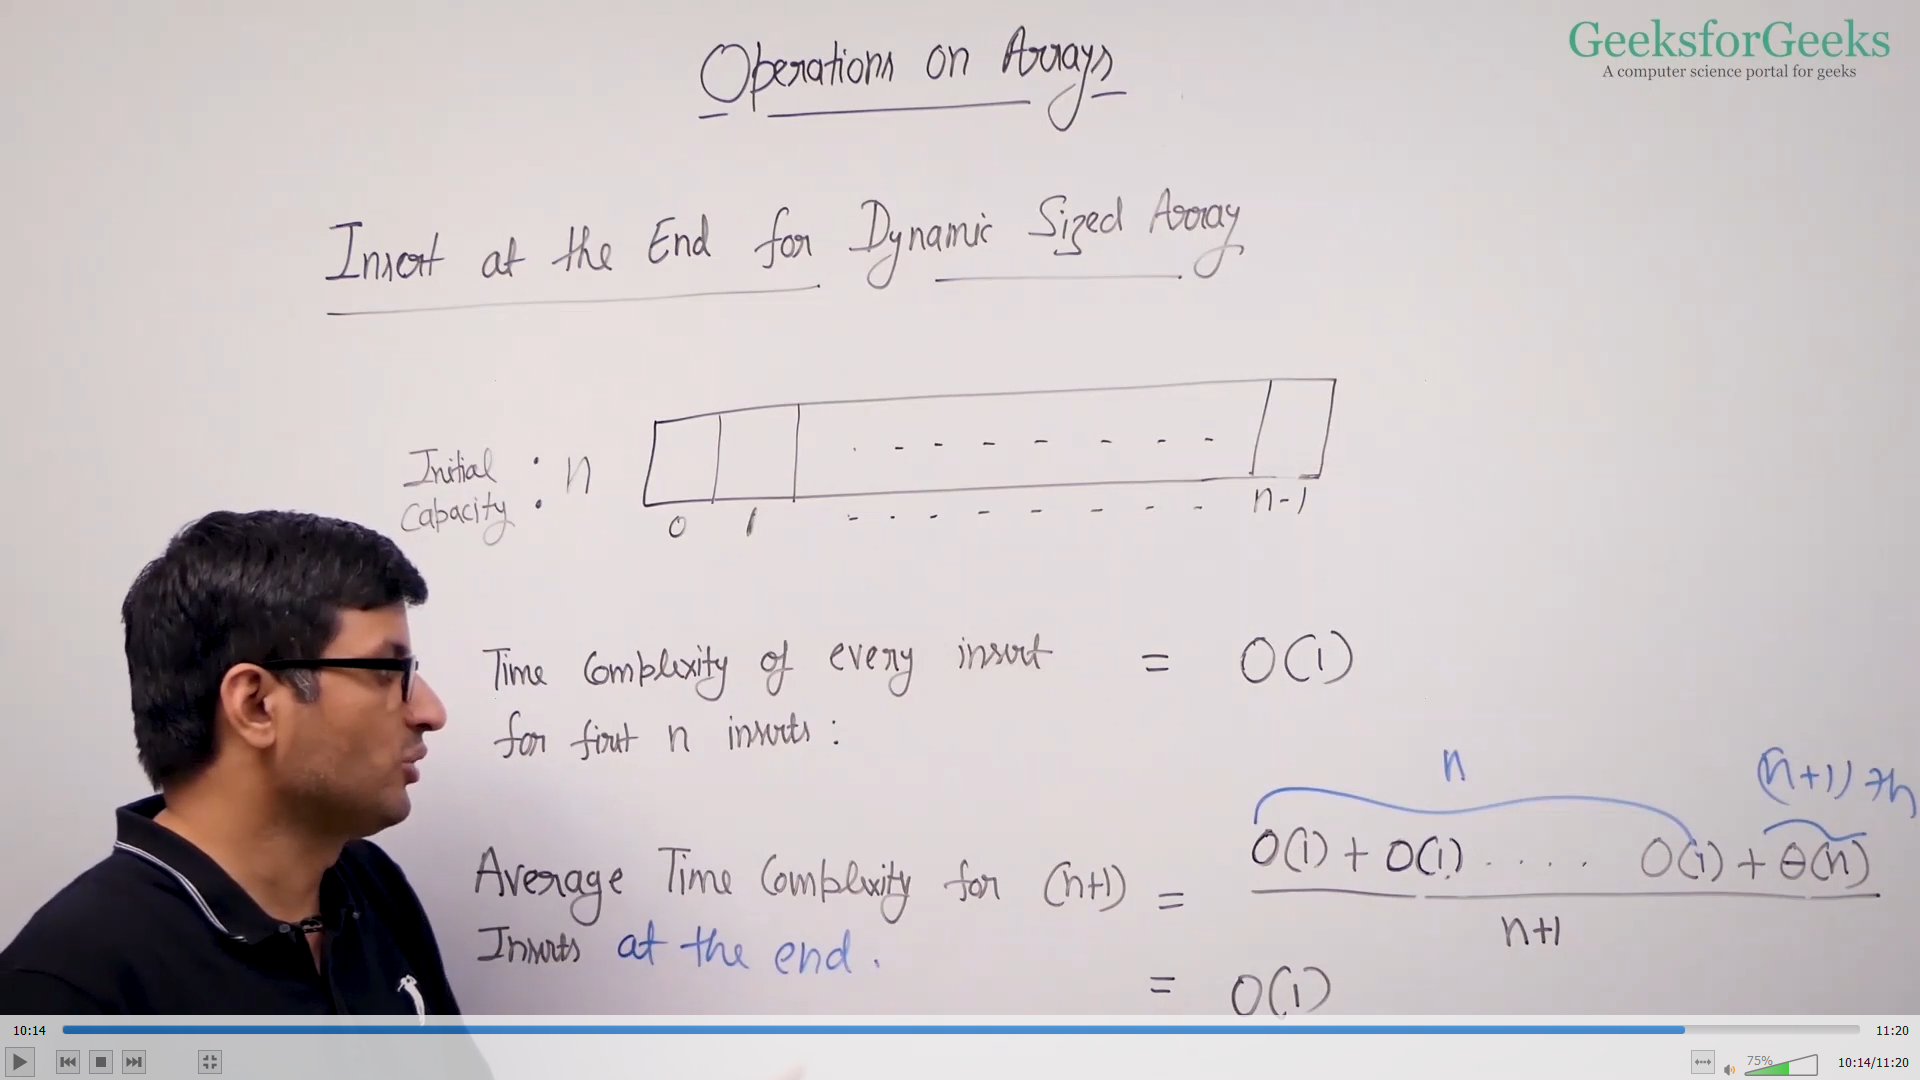 GeeksforGeeks
A computer science portal for geeks
Operations on Arrays
Insert at the End for Dynamic Sized Array
Initial Capacity : n
0 1 n-1
Time Complexity of every insert = O(1)
for first n inserts :
n (n+1)
O(1) + O(1) .... O(1) + θ(n)
Average Time Complexity for (n+1) =
n+1
Inserts at the end.
= O(1)
10:14 11:20
75% 10:14/11:20